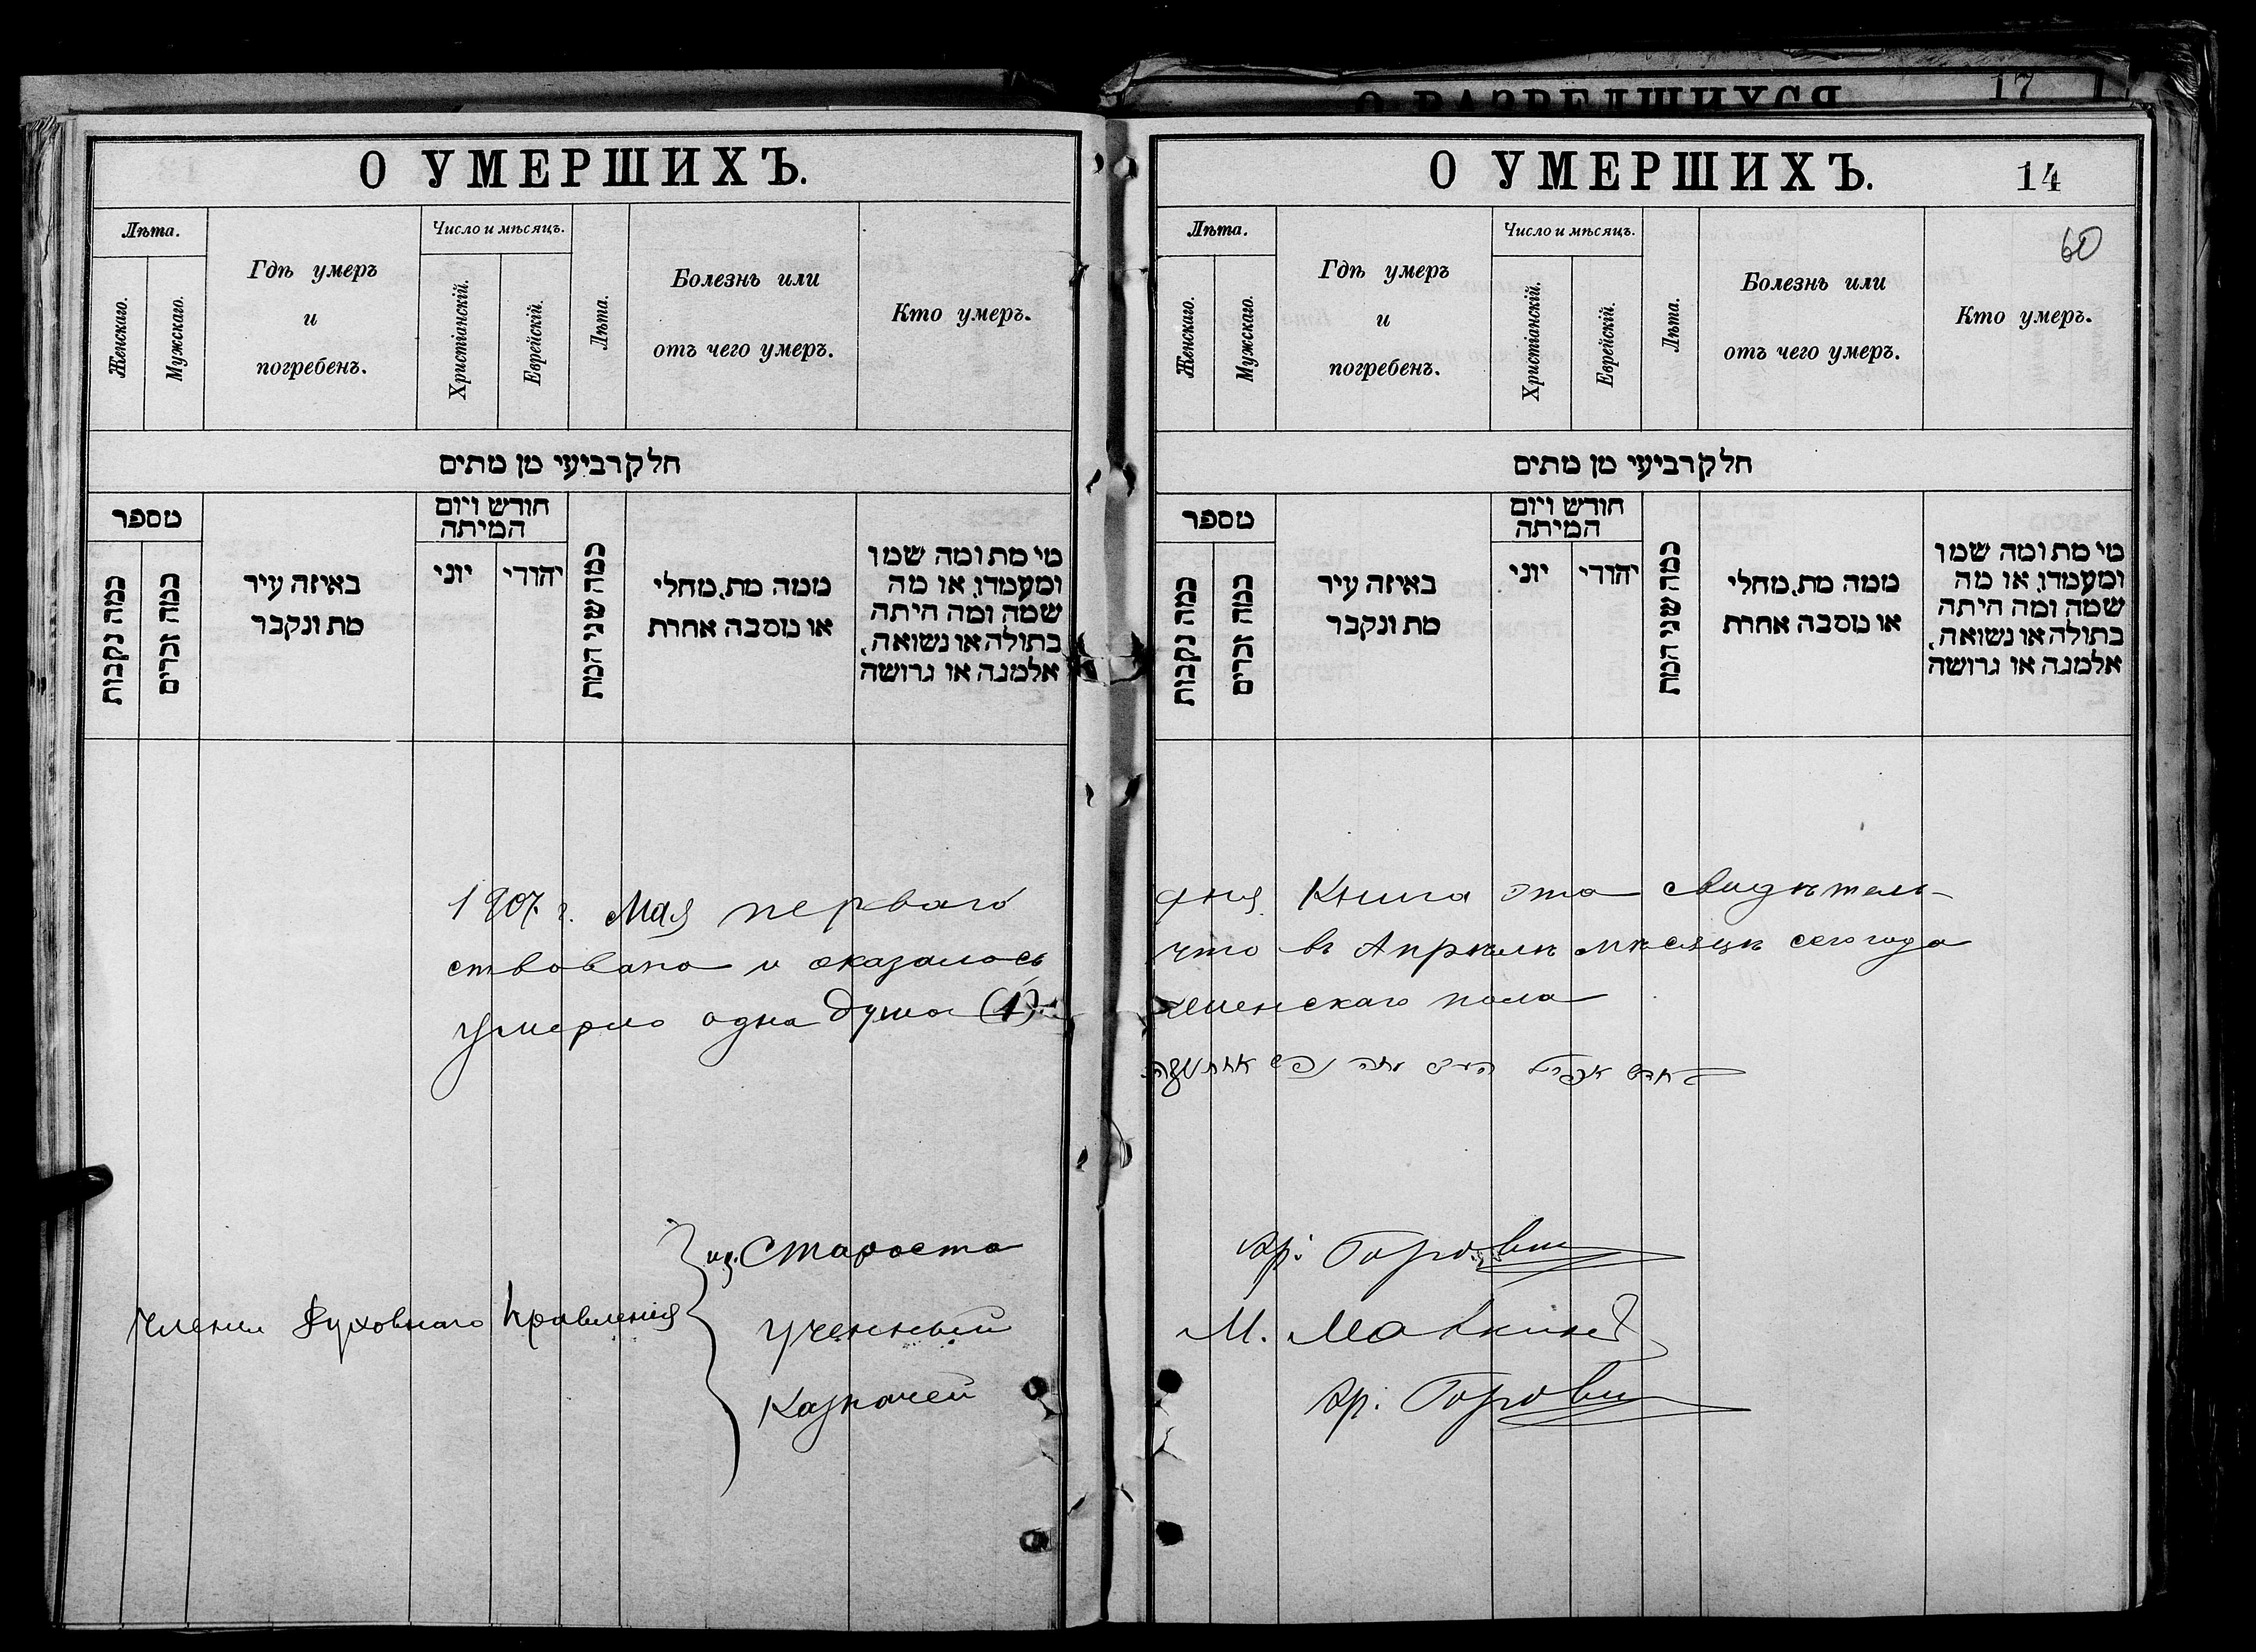 О РАЗВЕДШИХСЯ
17
О УМЕРШИХЪ.
Лѣта.
Женскаго.
Мужскаго.
Гдѣ умеръ
и
погребенъ.
Число и мѣсяцъ.
Христіанскій.
Еврейскій.
Лѣта.
Болезнь или
отъ чего умеръ.
Кто умеръ.
חלק רביעי מן מתים
מספר
כמה נקבות
כמה זכרים
באיזה עיר
מת ונקבר
חודש ויום
המיתה
יוני
יהודי
כמה שני המת
ממה מת, מחלי
או מסבה אחרת
מי מת ומה שמו
ומעמדו, או מה
שמה ומה היתה
בתולה או נשואה,
אלמנה או גרושה
О УМЕРШИХЪ.
14
60
Лѣта.
Женскаго.
Мужскаго.
Гдѣ умеръ
и
погребенъ.
Число и мѣсяцъ.
Христіанскій.
Еврейскій.
Лѣта.
Болезнь или
отъ чего умеръ.
Кто умеръ.
חלק רביעי מן מתים
מספר
כמה נקבות
כמה זכרים
באיזה עיר
מת ונקבר
חודש ויום
המיתה
יוני
יהודי
כמה שני המת
ממה מת, מחלי
או מסבה אחרת
מי מת ומה שמו
ומעמדו, או מה
שמה ומה היתה
בתולה או נשואה,
אלמנה או גרושה
1907 г. Мая перваго дня Книга эта свидѣтель-
ствована и оказалось что въ Апрѣлѣ мѣсяцѣ сего года
умерло одна душа (1) женскаго пола
Члены Духовнаго Правленія
Староста
Ученный
Казначей